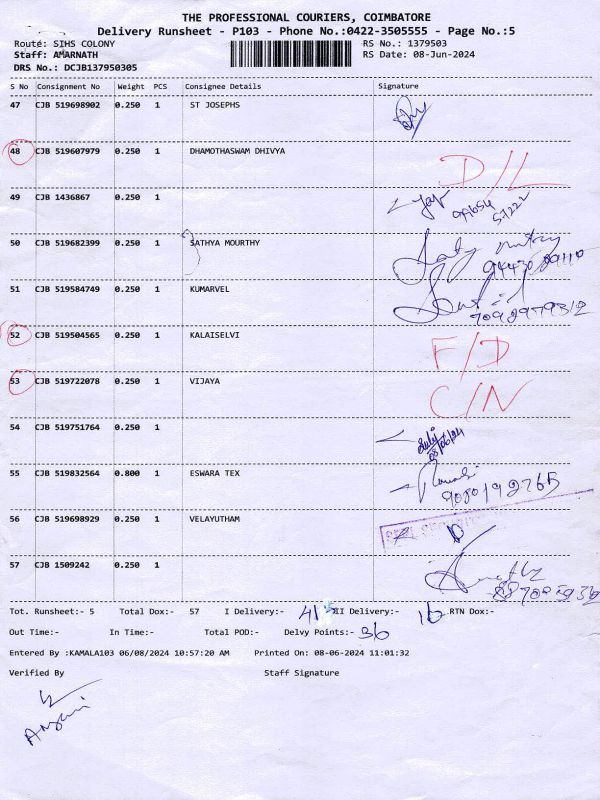 THE PROFESSIONAL COURIERS, COIMBATORE
Delivery Runsheet - P103 - Phone No.:0422-3505555 - Page No.:5
Route: SIHS COLONY RS No.: 1379503
Staff: AMARNATH RS Date: 08-Jun-2024
DRS No.: DCJB137950305
S No Consignment No Weight PCS Consignee Details Signature
47 CJB 519698902 0.250 1 ST JOSEPHS
48 CJB 519607979 0.250 1 DHAMOTHASWAM DHIVYA D/L
49 CJB 1436867 0.250 1
50 CJB 519682399 0.250 1 SATHYA MOURTHY
51 CJB 519584749 0.250 1 KUMARVEL
52 CJB 519504565 0.250 1 KALAISELVI F/D
53 CJB 519722078 0.250 1 VIJAYA C/N
54 CJB 519751764 0.250 1
55 CJB 519832564 0.800 1 ESWARA TEX
56 CJB 519698929 0.250 1 VELAYUTHAM
57 CJB 1509242 0.250 1
Tot. Runsheet:- 5 Total Dox:- 57 I Delivery:- 41 II Delivery:- 16 RTN Dox:-
Out Time:- In Time:- Total POD:- Delvy Points:- 36
Entered By :KAMALA103 06/08/2024 10:57:20 AM Printed On: 08-06-2024 11:01:32
Verified By Staff Signature